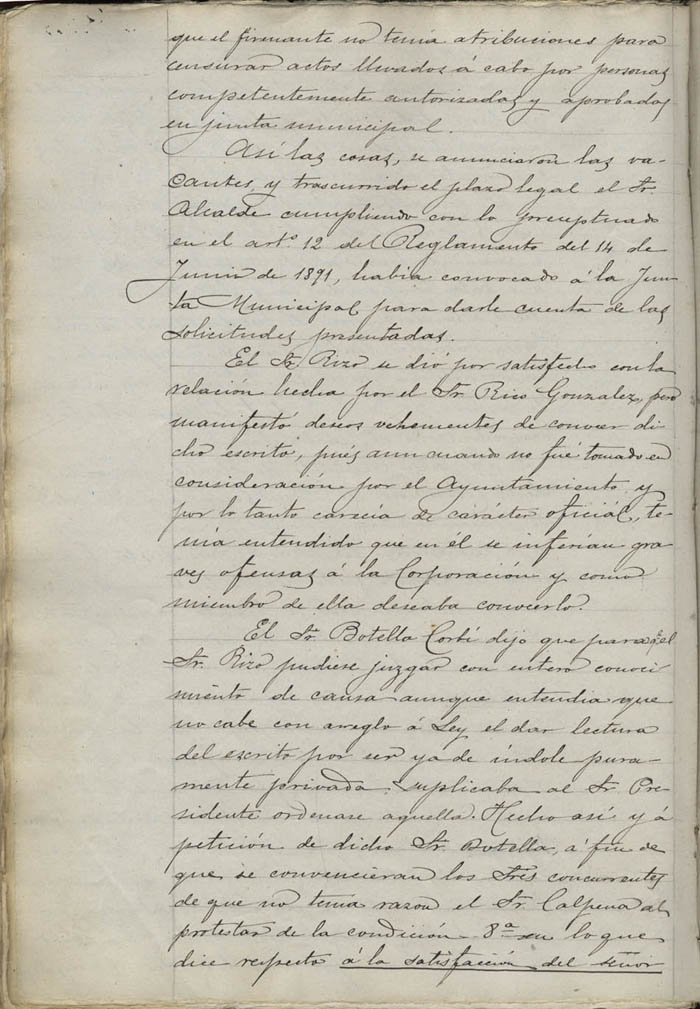 que el firmante no tenia atribuciones para
censurar actos llevados á cabo por personas
competentemente autorizadas y aprobadas
en junta municipal.
Asi las cosas, se anunciaron las va-
cantes, y trascurrido el plazo legal el Sr.
Alcalde cumpliendo con lo preceptuado
en el artº 12 del Reglamento del 14 de
Junio de 1891, habia convocado á la Jun-
ta Municipal para darle cuenta de las
solicitudes presentadas.
El Sr. Rizo se dió por satisfecho con la
relación hecha por el Sr. Rico Gonzalez, pero
manifestó deseos vehementes de conocer di
cho escrito, pués aun cuando no fué tomado en
consideración por el Ayuntamiento y
por lo tanto carecia de carácter oficiál, te-
nia entendido que en él se inferian gra
ves ofensas á la Corporación y como
miembro de ella deseaba conocerlo.
El Sr. Botella Corbí dijo que para q.e el
Sr. Rizo pudiese juzgar con entero conoci
miento de causa aunque entendia que
no cabe con arreglo á Ley el dar lectura
del escrito por ser ya de índole pura-
mente privada, suplicaba al Sr. Pre-
sidente ordenase aquella. Hecho así y á
petición de dicho Sr. Botella, á fin de
que se convencieran los Sres concurrentes
de que no tenia razon el Sr. Calpena al
protestar de la condición 8ª en lo que
dice respecto á la satisfacción del señor